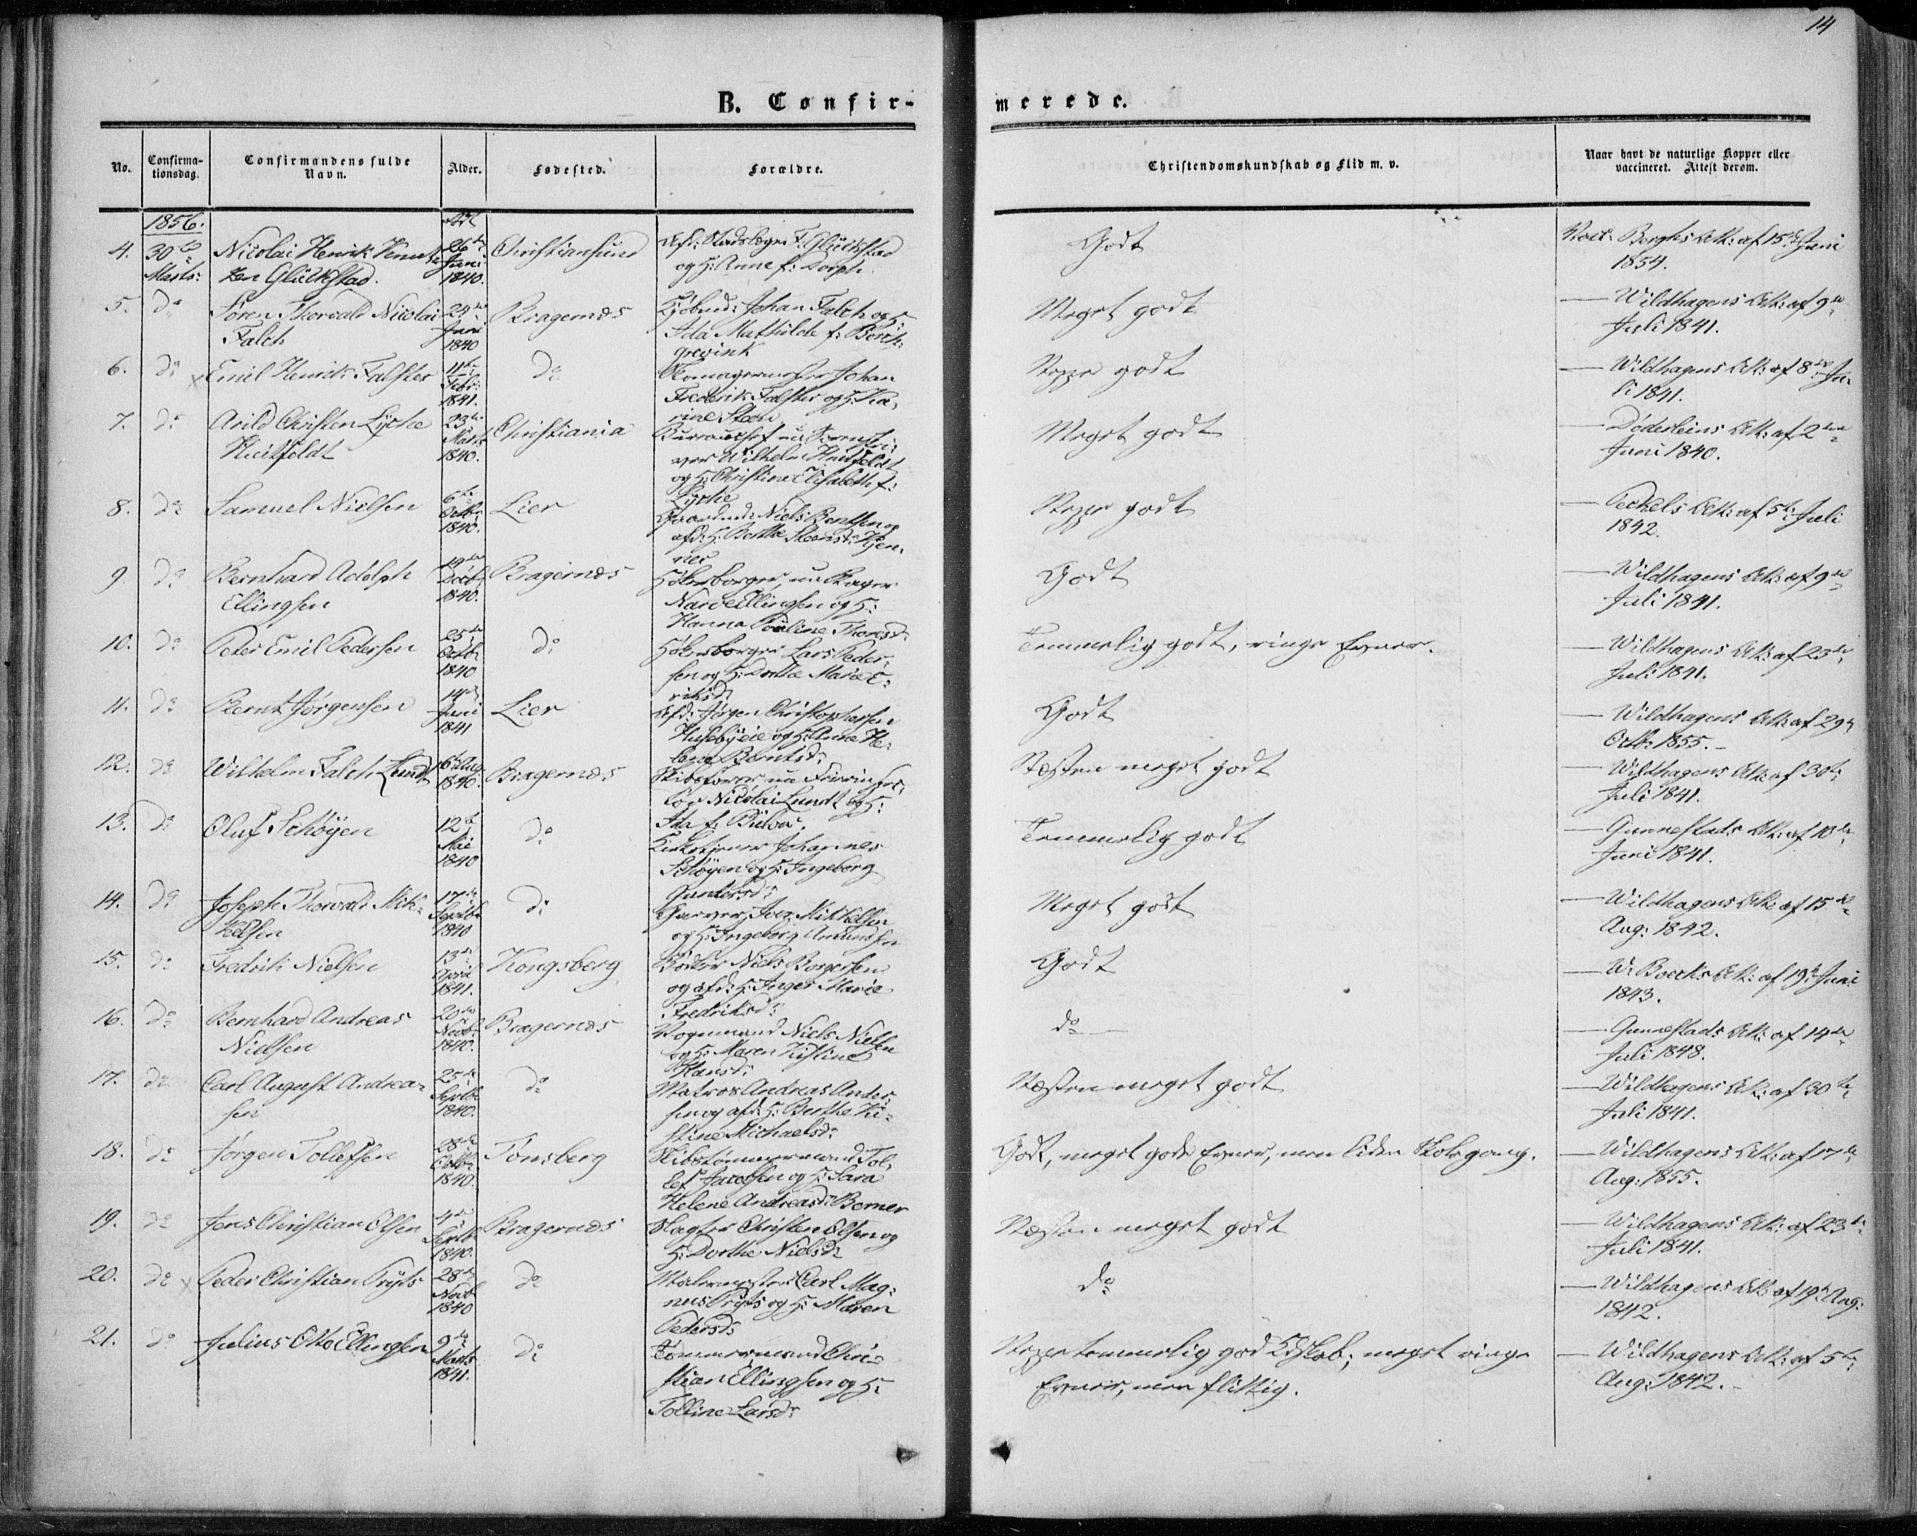 14
B. Confirmerede.
No. Confirmationsdag. Confirmandens fulde Navn. Alder. Fødested. Forældre. Christendomskundskab og Flid m. v. Naar havt de naturlige Kopper eller vaccineret. Attest derom.
1856.
4. 30te Marts: Nicolai Henrik Glückstad. 26de Juni 1840. Christiansund F. Glückstad
og H: Anne f: Dorph. Godt Berghs Att: af 15de Juni
1854.
5. do Søren Thorvald Nicolai
Falch 1840 Bragernæs Kjøbmd: Johan Falch og H:
Ida Mathilde f: Borch-
grevink Meget godt — Wildhagens Att: af 9de
Juli 1841.
6. do Emil Henrik Falster 11te Febr: 1841. do Johan
Frederik Falster og H: Ka-
rine Steen Neppe godt — Wildhagens Att: af 8de Ju-
li 1841.
7. do Arild Christen Lyche
Huitfeldt 23de Marts 1840. Christiania Wilhelm Huitfeldt
og H: Christine Elisabeth f:
Lyche Meget godt — Døderleins Att: af 2den
Juni 1840.
8. do Samuel Nielsen 6te Octbr 1840. Lier Gaardmd: Niels Bentsen og
afd: H: Berthe Steensd: Kjen-
ner Neppe godt — Att: af 5te Juli
1842.
9. do Bernhard Adolph
Ellingsen 1840. Bragernæs
Narve Ellingsen og H:
Hanna Pauline Thorsd: Godt — Wildhagens Att: af 9de
Juli 1841.
10. do Peter Emil Pedersen 25de Octbr 1840 do Lars Peder-
sen og H: Dorthe Marie E-
riksd: Temmelig godt, ringe Evner. — Wildhagens Att: af 23de
Juli 1841.
11. do Bernt Jørgensen 14de Juni 1841 Lier Afd: Jørgen Christophersen
Husebyeie og H: Anne He-
lene Berntsd: Godt — Wildhagens Att: af 29de
Octb: 1855.
12. do Wilhelm Falch Lundt 6te Aug 1840. Bragernæs Skibsfører
Nicolai Lundt og H:
Ida f: Næsten meget godt — Wildhagens Att: af 30te
Juli 1841.
13. do Oluf Schøyen 12te Mai 1840 do Kirketjener Johannes
Schøyen og H: Ingeborg
Gundersd: Temmelig godt — Gunnestads Att: af 10de
Juni 1841.
14. do Joseph Thorvald Mik-
kelsen 17de Septbr 1840 do Garver Iver Mikkelsen
og H: Ingeborg Meget godt — Wildhagens Att: af 15de
Aug: 1842.
15. do Fredrik Nielsen 13de April 1841. Kongsberg Bødker Niels Borgersen
og afd: H: Inger Marie
Fredriksd: Godt — W: Boecks Att: af 19de Juni
1843.
16. do Bernhard Andreas
Nielsen 20de Novbr 1840. Bragernæs Vognmand Niels Nielsen
og H: Maren Kistine
Hansd: do — Gunnestads Att: af 14de
Juli 1848.
17. do Carl August Andrea-
sen 25de Septbr 1840. do Matros Andreas Ander-
sen og afd: H: Berthe Ki-
stine Michaelsd: Næsten meget godt — Wildhagens Att: af 30te
Juli 1841.
18. do Jørgen Tollefsen 28de Octbr 1840. Tønsberg Skibstømmermand Tol-
lef Jacobsen og H: Sara
Helene Andreasd: Berner Godt, meget gode Evner, men liden Skolegang. — Wildhagens Att: af 17de
Aug: 1855.
19. do Jens Christian Olsen 4de Septbr 1840. Bragernæs Slagter Christen Olsen og
H: Dorthe Nielsd: Næsten meget godt — Wildhagens Att: af 23de
Juli 1841.
20. do Peder Christian Prÿts 28de Novbr 1840 do Malermester Carl Mag-
nus Prÿts og H: Maren
Pedersd: do — Wildhagens Att: af 19de Aug:
1842.
21. do Julius Otto Ellingsen 9de Marts 1841. do Tømmermand Chri-
stian Ellingsen og H:
Tolline Larsd: Neppe temmelig god Kdskab; meget ringe
Evner, men flittig. — Wildhagens Att: af 5te
Aug: 1842.